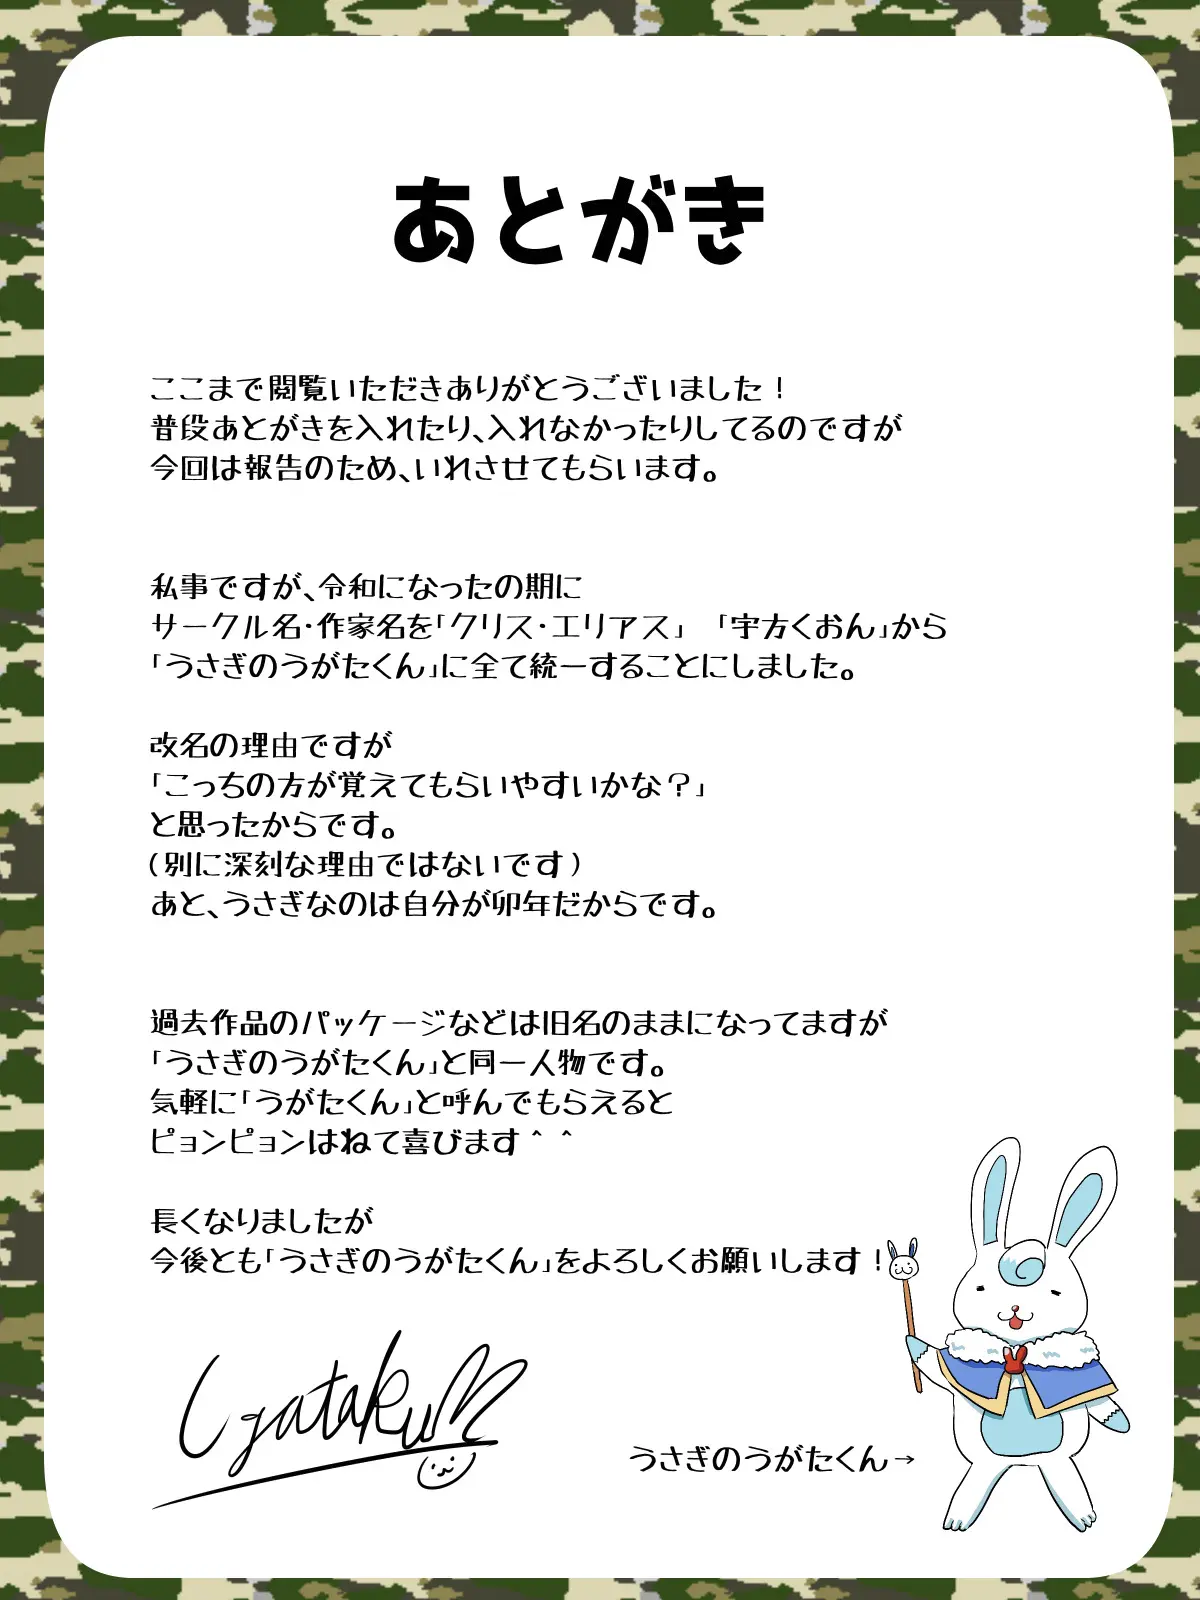 あとがき
ここまで閲覧いただきありがとうございました！
普段あとがきを入れたり、入れなかったりしてるのですが
今回は報告のため、いれさせてもらいます。
私事ですが、令和になったの期に
サークル名・作家名を「クリス・エリアス」 「宇方くおん」から
「うさぎのうがたくん」に全て統一することにしました。
改名の理由ですが
「こっちの方が覚えてもらいやすいかな？」
と思ったからです。
（別に深刻な理由ではないです）
あと、うさぎなのは自分が卯年だからです。
過去作品のパッケージなどは旧名のままになってますが
「うさぎのうがたくん」と同一人物です。
気軽に「うがたくん」と呼んでもらえると
ピョンピョンはねて喜びます＾＾
長くなりましたが
今後とも「うさぎのうがたくん」をよろしくお願いします！
Ugatakun
うさぎのうがたくん→